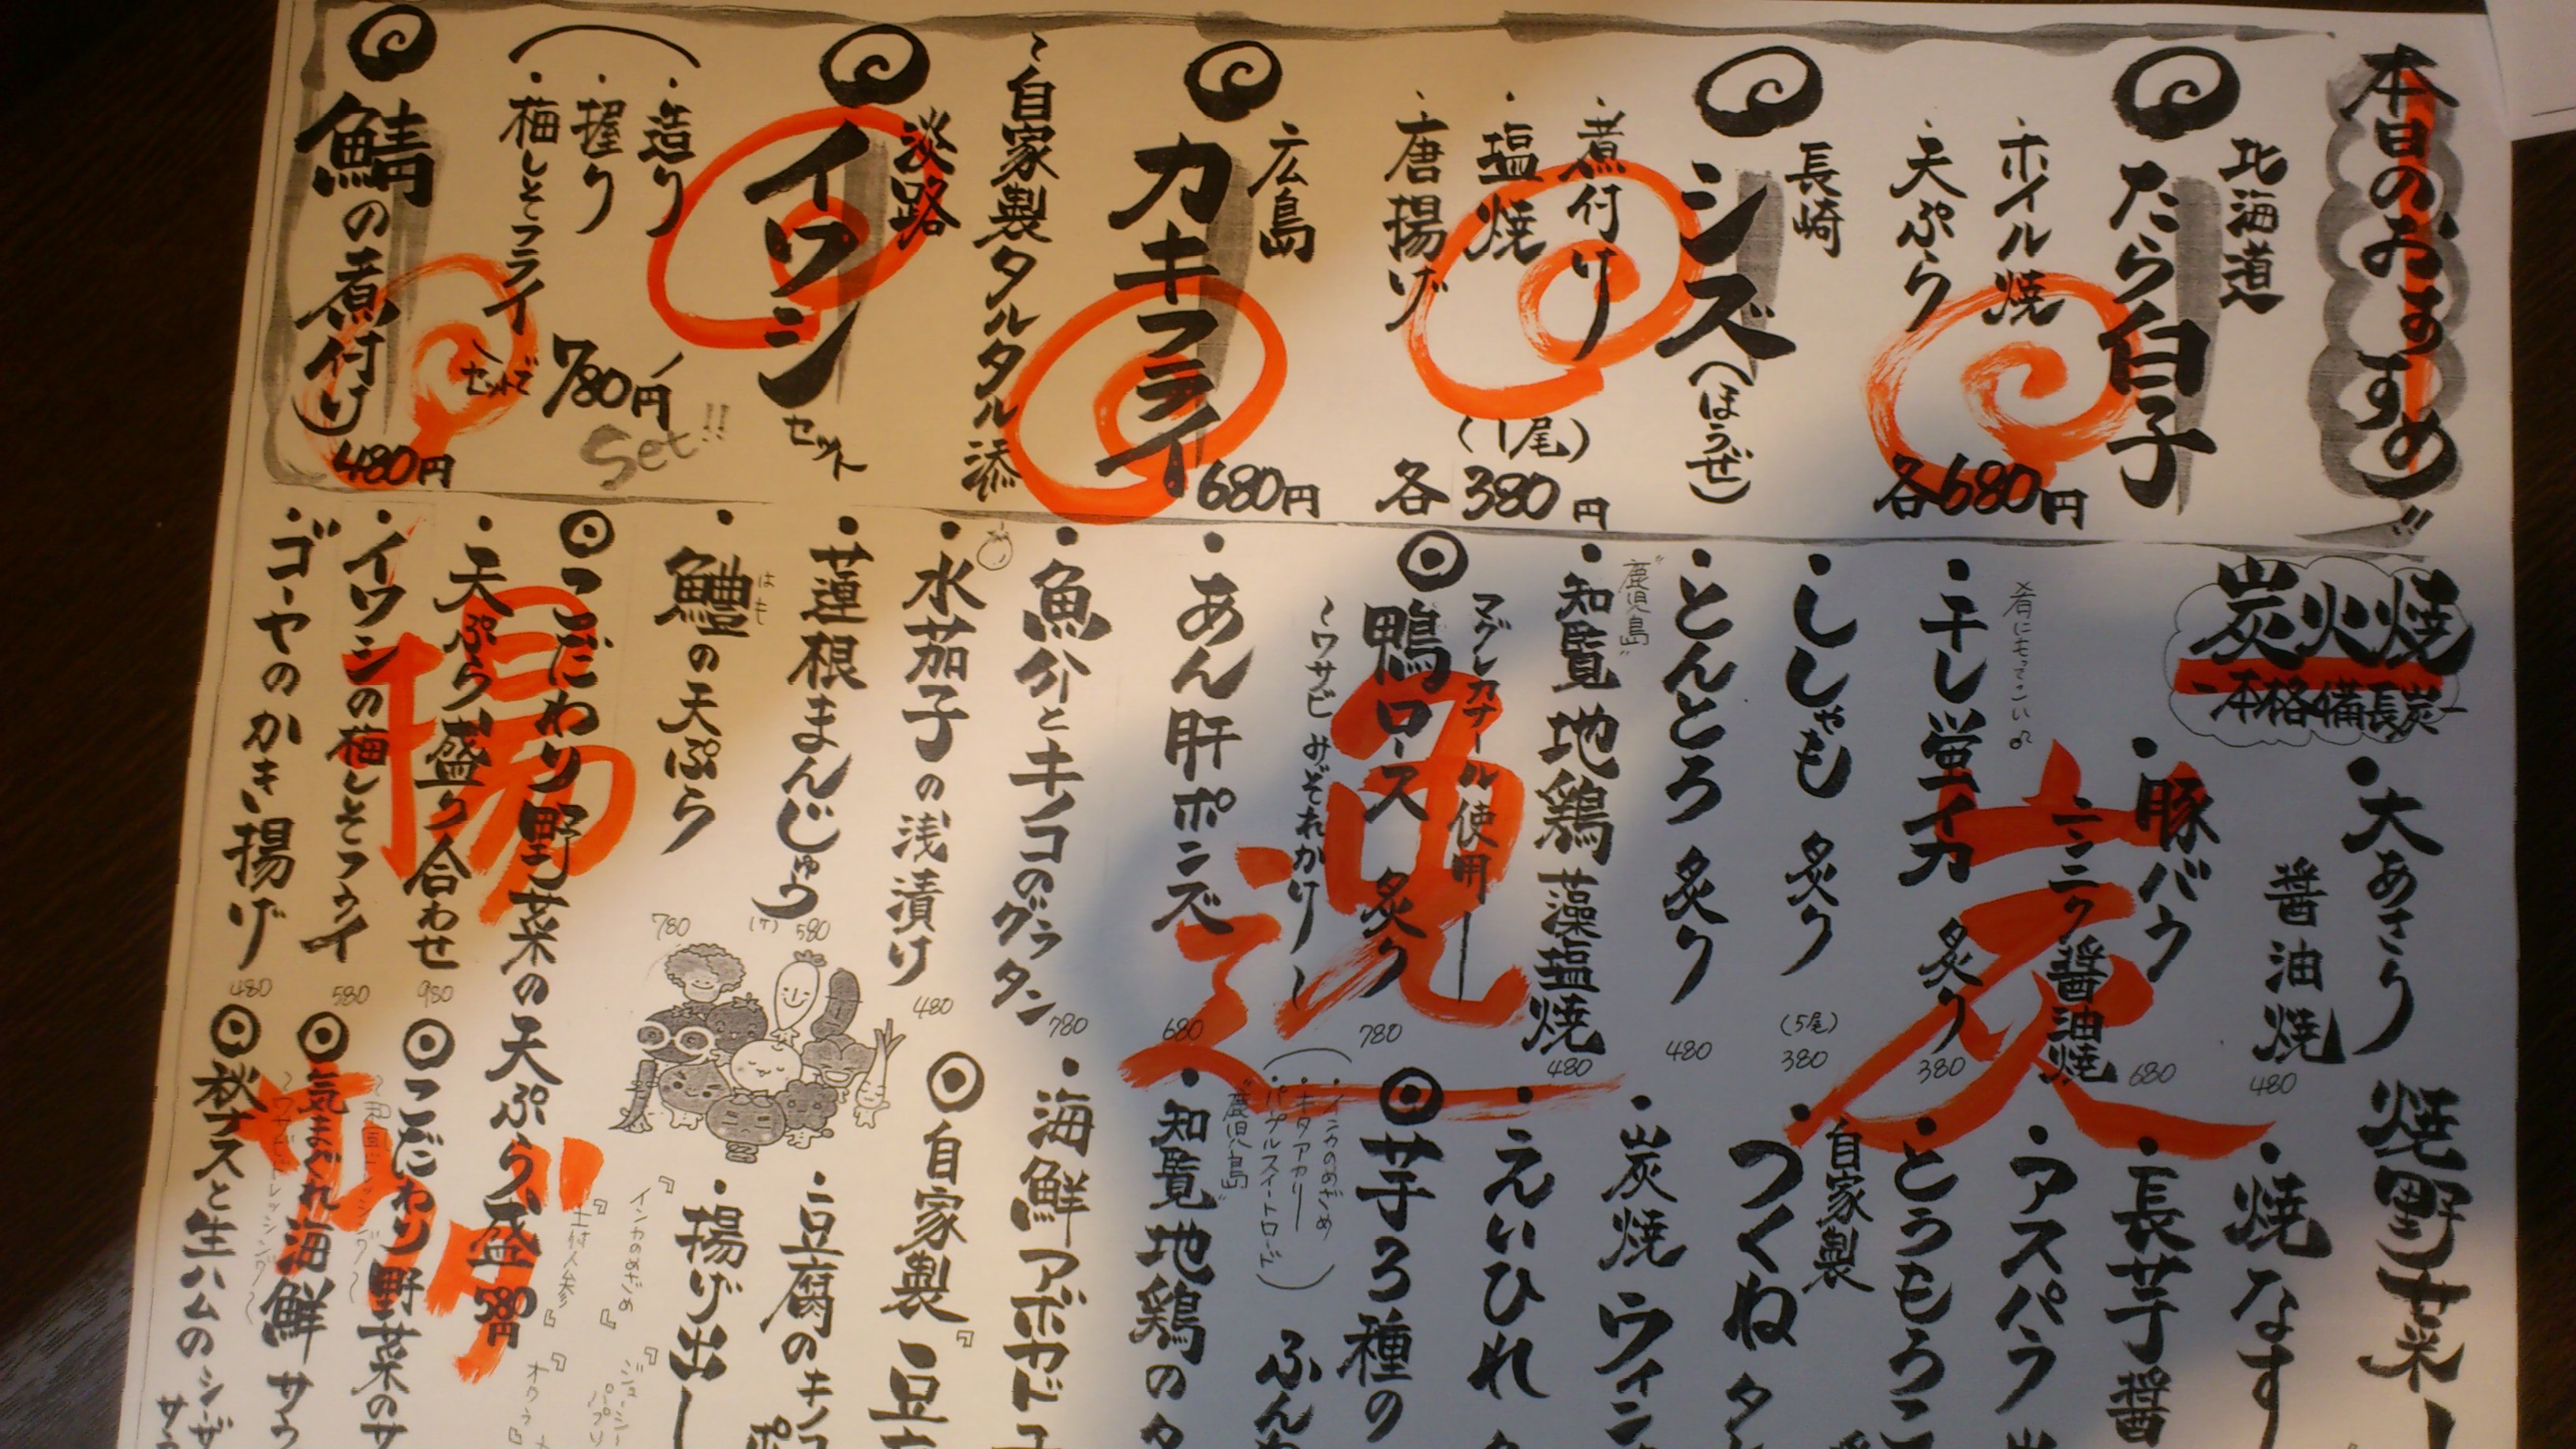 本日のおすすめ!!
北海道
たら白子
・ホイル焼
・天ぷら
各680円
長崎
シズ(ほうぜ)
・煮付け
・塩焼
・唐揚げ
(1尾)
各380円
広島
カキフライ
680円
~自家製タルタル添
淡路
イワシセット
・造り
・握り
・梅しそフライ
セットで
780円
Set!!
鯖の煮付け
480円
炭火焼
-本格備長炭-
炭
・大あさり
醤油焼
480
・豚バラ
ニンニク醤油焼
680
肴にもってこい
・干し蛍イカ 炙り
380
・ししゃも 炙り
(5尾)
380
・とんとろ 炙り
480
"鹿児島"
・知覧地鶏藻塩焼
480
マグレカナール使用ー
◎鴨ロース 炙り
~ワサビみぞれかり~
780
逸
・あん肝ポンズ
680
・魚介とキノコのグラタン
780
・水茄子の浅漬け
480
・蓮根まんじゅう
(ケ) 580
はも
・鱧の天ぷら
780
揚げ
◎こだわり野菜の天ぷら盛
580円
・天ぷら盛り合わせ
980
・イワシの梅しそフライ
580
・ゴーヤのかき揚げ
480
焼野菜ー
・焼なす
・長芋 醤
・アスパラ
・とうもろこ
自家製
つくね タ
・炭焼 ウィン
・えいひれ
◎芋3種の
ふん
・インカのめざめ
・キタアカリー
・パープルスイートロード
"鹿児島"
・知覧地鶏の
・海鮮アボカド
◎自家製
豆
・豆腐のキノコ
・揚げ出し
『インカのめざめ』
◎こだわり野菜のサ
◎気まぐれ海鮮 サラ
~ワサビドレッシング~
◎秋ナスと生ハムのシーザ
サラ